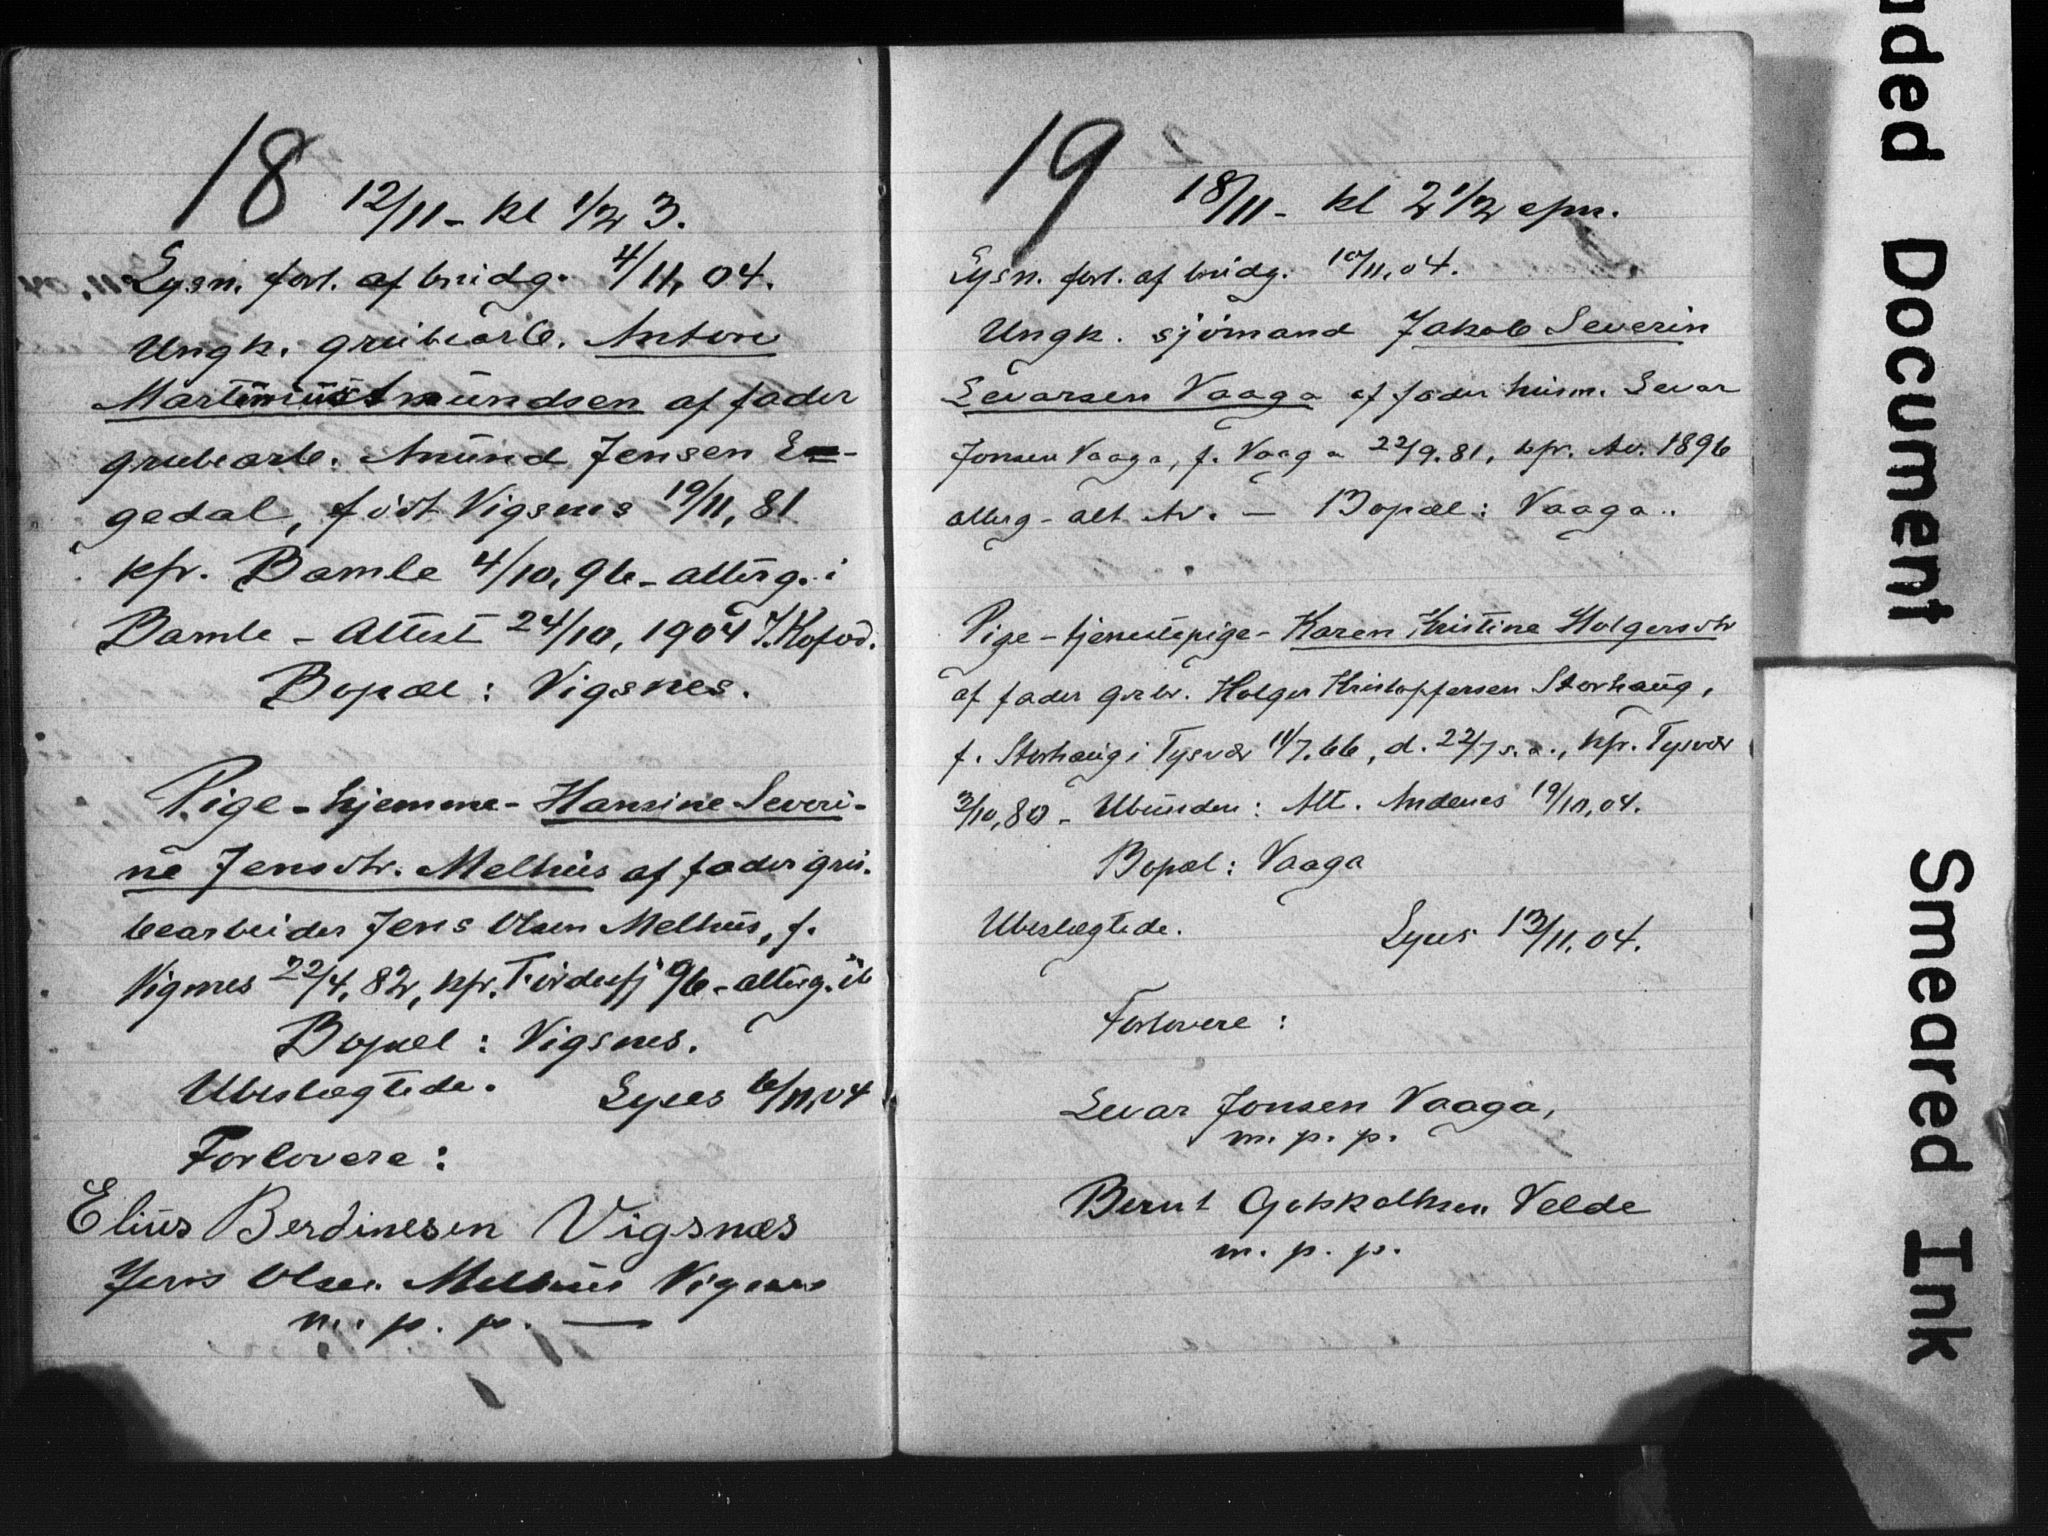 18
12/11 - kl 1/2 3.
Lysn. forl. af brudg. 4/11, 04.
Ungk. grubearb. Anton
Martinius Amundsen af fader
grubearb. Amund Jensen E-
gedal, født Vigsnes 19/11, 81
kfr. Bamle 4/10, 96 - alterg. i
Bamle - Attest 24/10, 1904 J. Kofod.
Bopæl: Vigsnes.
Pige - hjemme - Hansine Severi-
ne Jensdtr. Melhus af fader gru-
bearbeider Jens Olsen Melhus, f.
Vigsnes 22/4, 82, kfr. Førdesfj 96 - alterg. ib
Bopæl: Vigsnes.
Ubeslægtede. Lyses 6/11, 04
Forlovere:
Elius Berdinesen Vigsnæs
Jens Olsen Melhus Vigsnes
m. p. p. —
19
18/11 - kl 2 1/2 epm.
Lysn. forl. af brudg. 10/11, 04.
Ungk. sjömand Jakob Severin
Levarsen Vaaga af fader husm. Levar
Jonsen Vaaga, f. Vaaga 22/9. 81, kfr. Av. 1896
alterg - alt Av. - Bopæl: Vaaga.
Pige - tjenestepige - Karen Kristine Holgersdtr
af fader grbr. Holger Kristoffersen Storhaug,
f. Storhaug i Tysvær 11/7. 66, d. 22/7 s. a., kfr. Tysvær
3/10, 80 - Ubunden: Att. Andenes 19/10, 04.
Bopæl: Vaaga
Ubeslægtede. Lyses 13/11, 04.
Forlovere:
Levar Jonsen Vaaga,
m. p. p.
Bernt Gotskalksen Velde
m. p. p.
ded Document
Smeared Ink